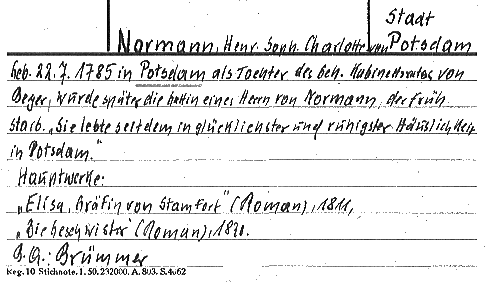 Stadt
Normann, Henr. Soph. Charlotte von Potsdam
Geb. 22.7.1785 in Potsdam als Tochter des Geh. Kabinettsrates von
Beyer, wurde später die Gattin eines Herrn von Normann, der früh
starb. „Sie lebte seitdem in glücklichster und ruhigster Häuslichkeit
in Potsdam."
Hauptwerke:
„Elisa, Gräfin von Stamfort" (Roman), 1811,
„Die Geschwister" (Roman), 1820.
B.A.: Brümmer
Keg. 10 Stichnote. 1. 50. 232000. A. 803. S. 4062